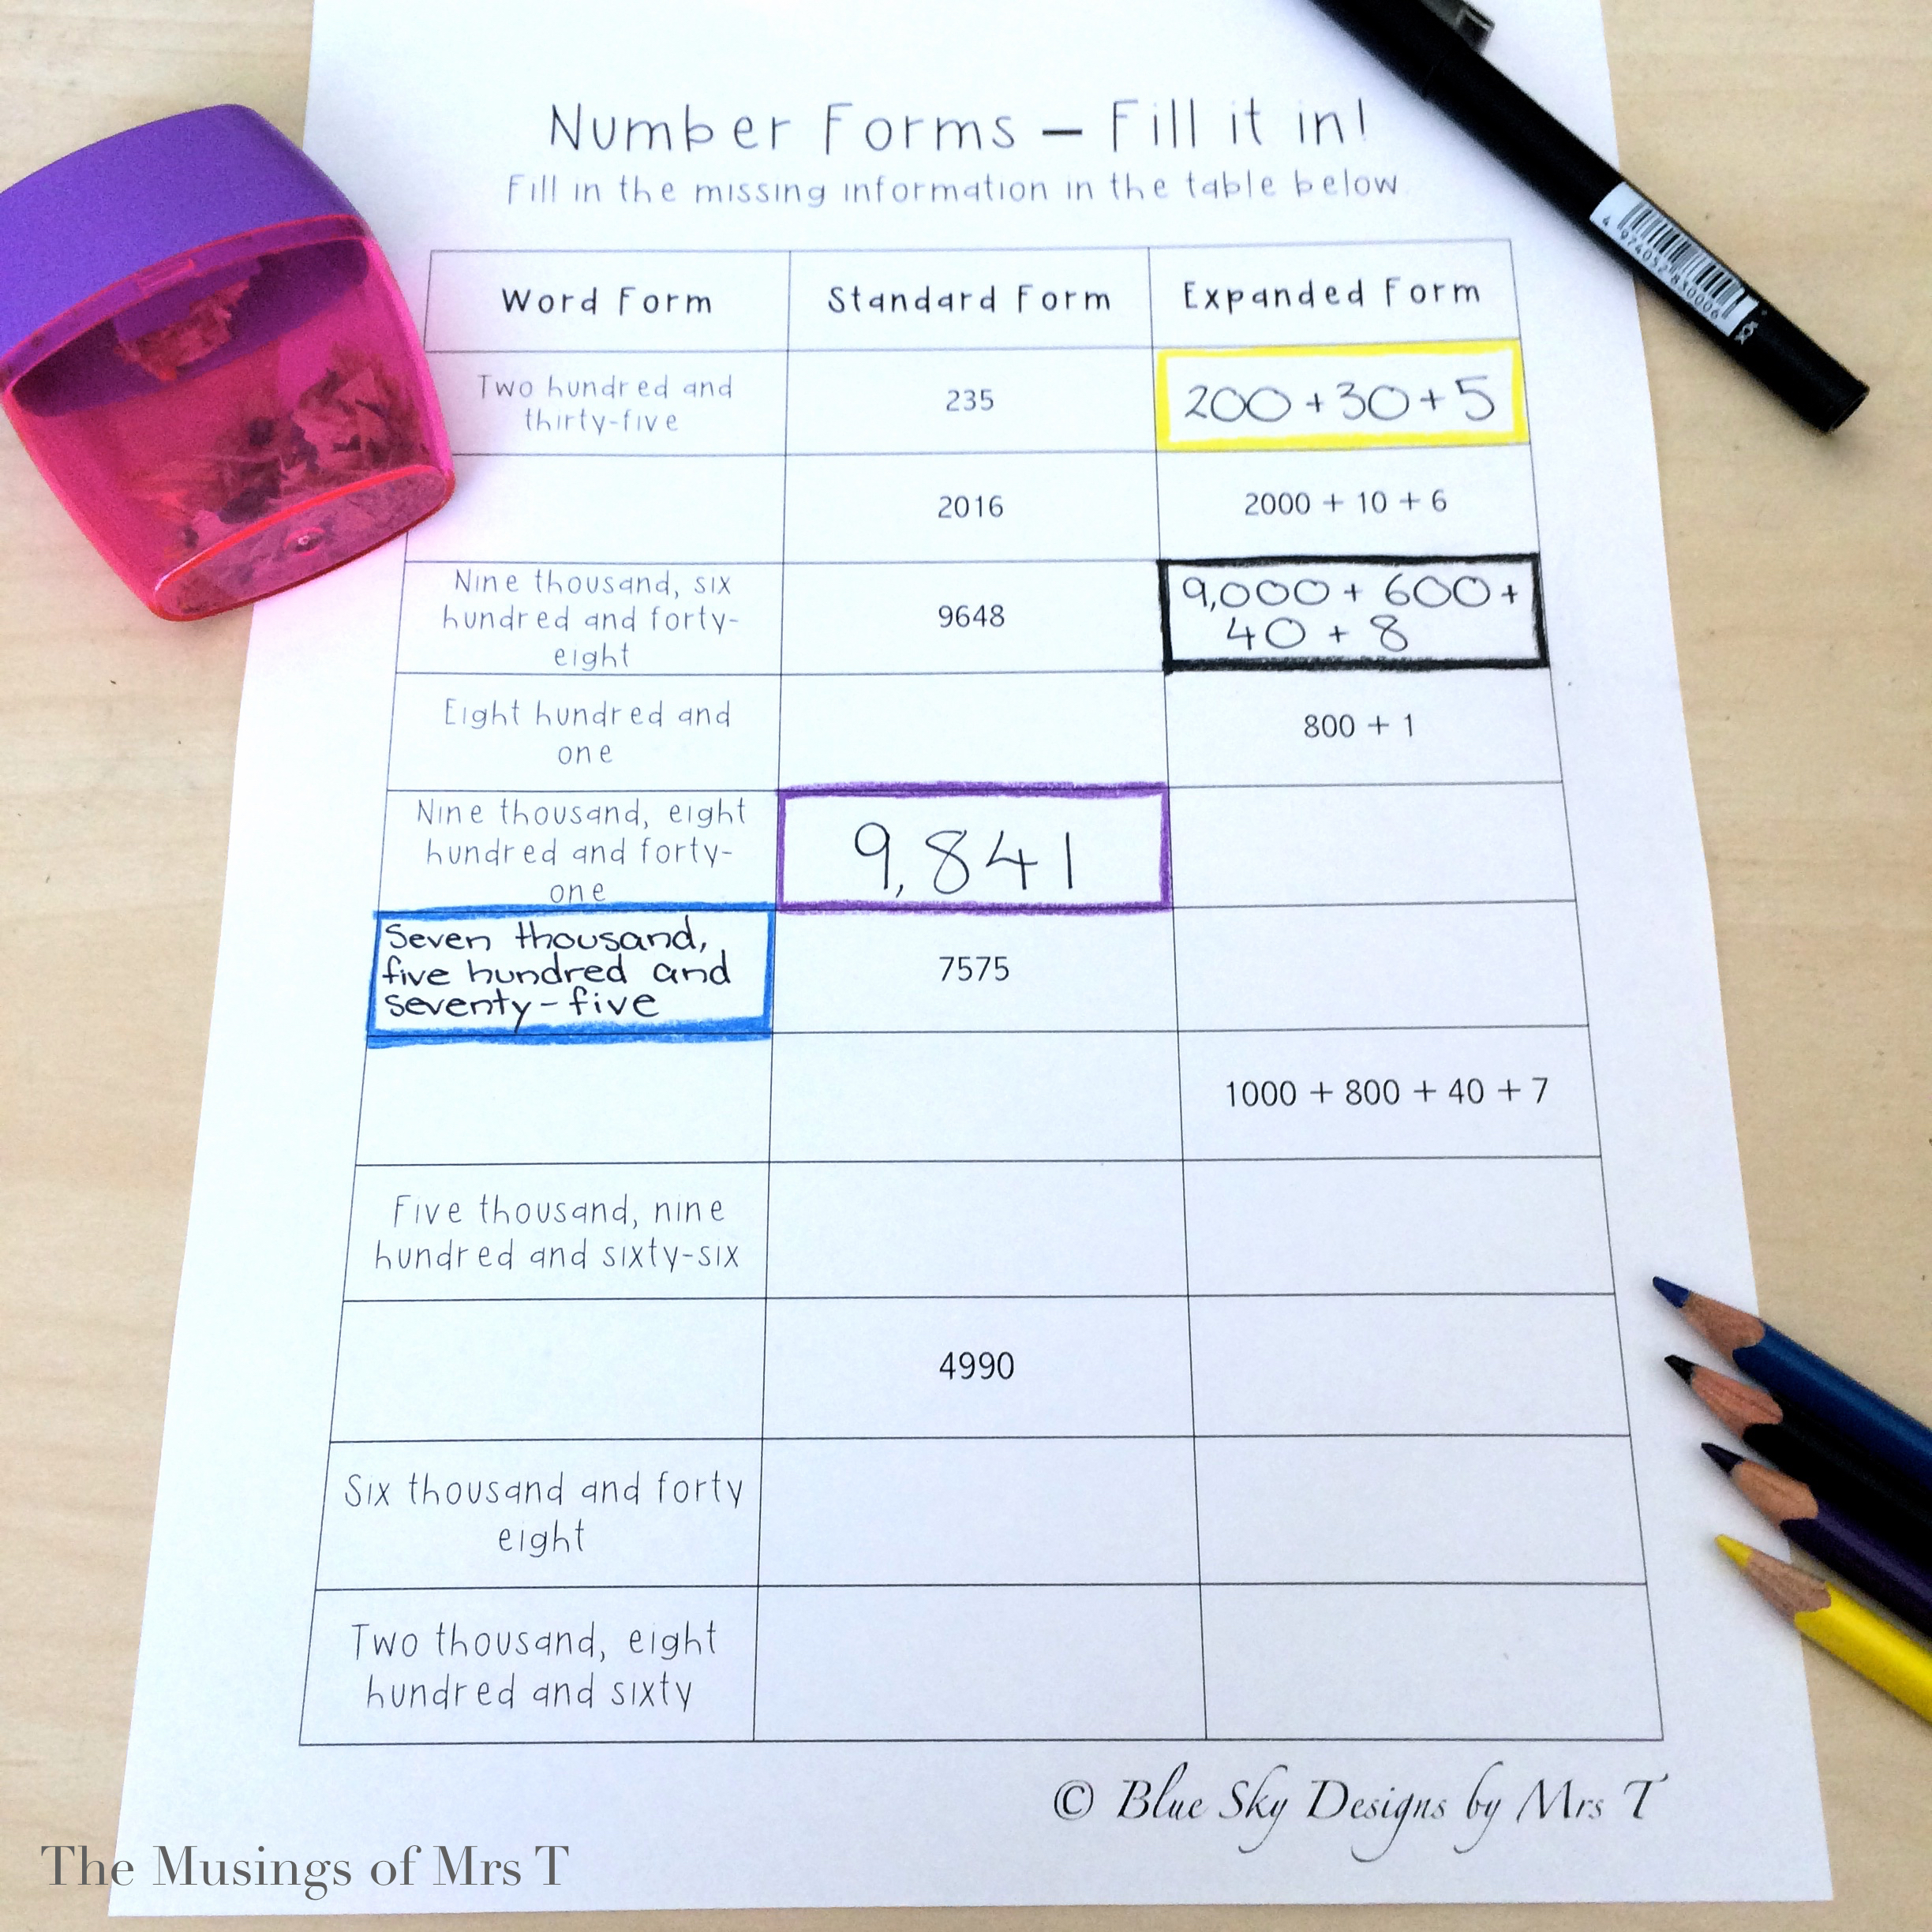 Number Forms – Fill it in!
Fill in the missing information in the table below.
Word Form
Standard Form
Expanded Form
Two hundred and
thirty-five
235
200 + 30 + 5
2016
2000 + 10 + 6
Nine thousand, six
hundred and forty-
eight
9648
9,000 + 600 +
40 + 8
Eight hundred and
one
800 + 1
Nine thousand, eight
hundred and forty-
one
9,841
Seven thousand,
five hundred and
seventy-five
7575
1000 + 800 + 40 + 7
Five thousand, nine
hundred and sixty-six
4990
Six thousand and forty
eight
Two thousand, eight
hundred and sixty
© Blue Sky Designs by Mrs T
The Musings of Mrs T
4 974052 830006